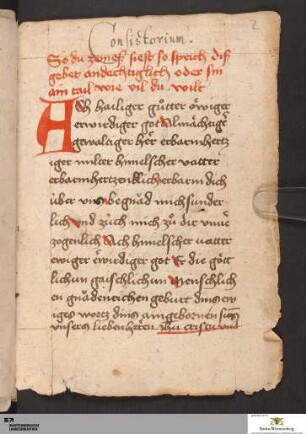 2
Consistorium.
So du zemeß siest so sprich diß
gebet andechtiglich oder sin
ain tail wie vil du wilt
Ach hailiger gůtter ewiger
erwirdiger got almächtiger
gewaltiger her erbarmhertz
iger milter himelscher vatter
erbarmhertzenklich erbarm dich
über uns begnad mich sunder
lich und züch mich zů dir unver
zogenlich Ach himelscher vatter
ewiger erwirdiger got Er die gött
lichun gaischlichun menschlich
en gnadenrichen geburt dins ew
iges wortz dins aingebornen suns
unsers lieben heren jhu cristi und
Baden-Württemberg